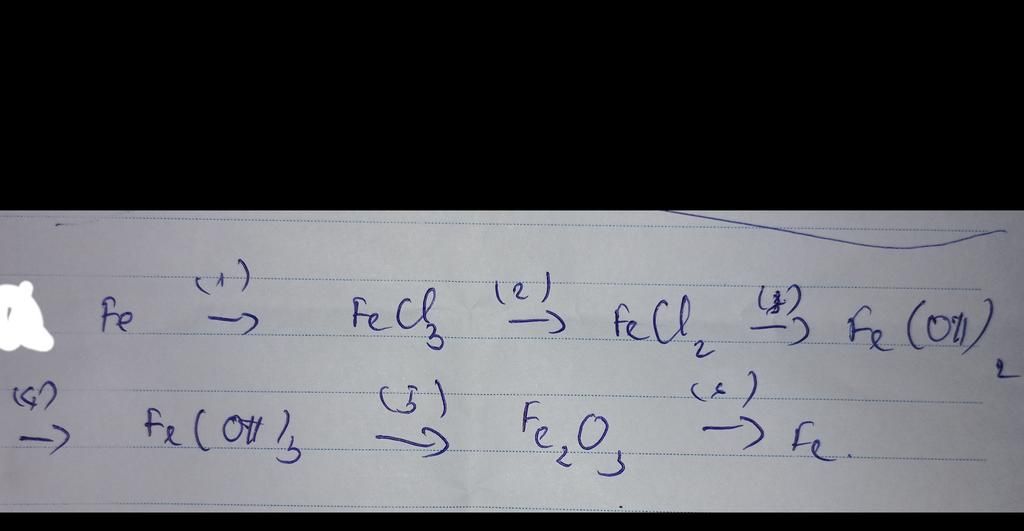 Fe (1) → FeCl₃ (2) → FeCl₂ (3) → Fe(OH)₂
(4) → Fe(OH)₃ (5) → Fe₂O₃ (6) → Fe.